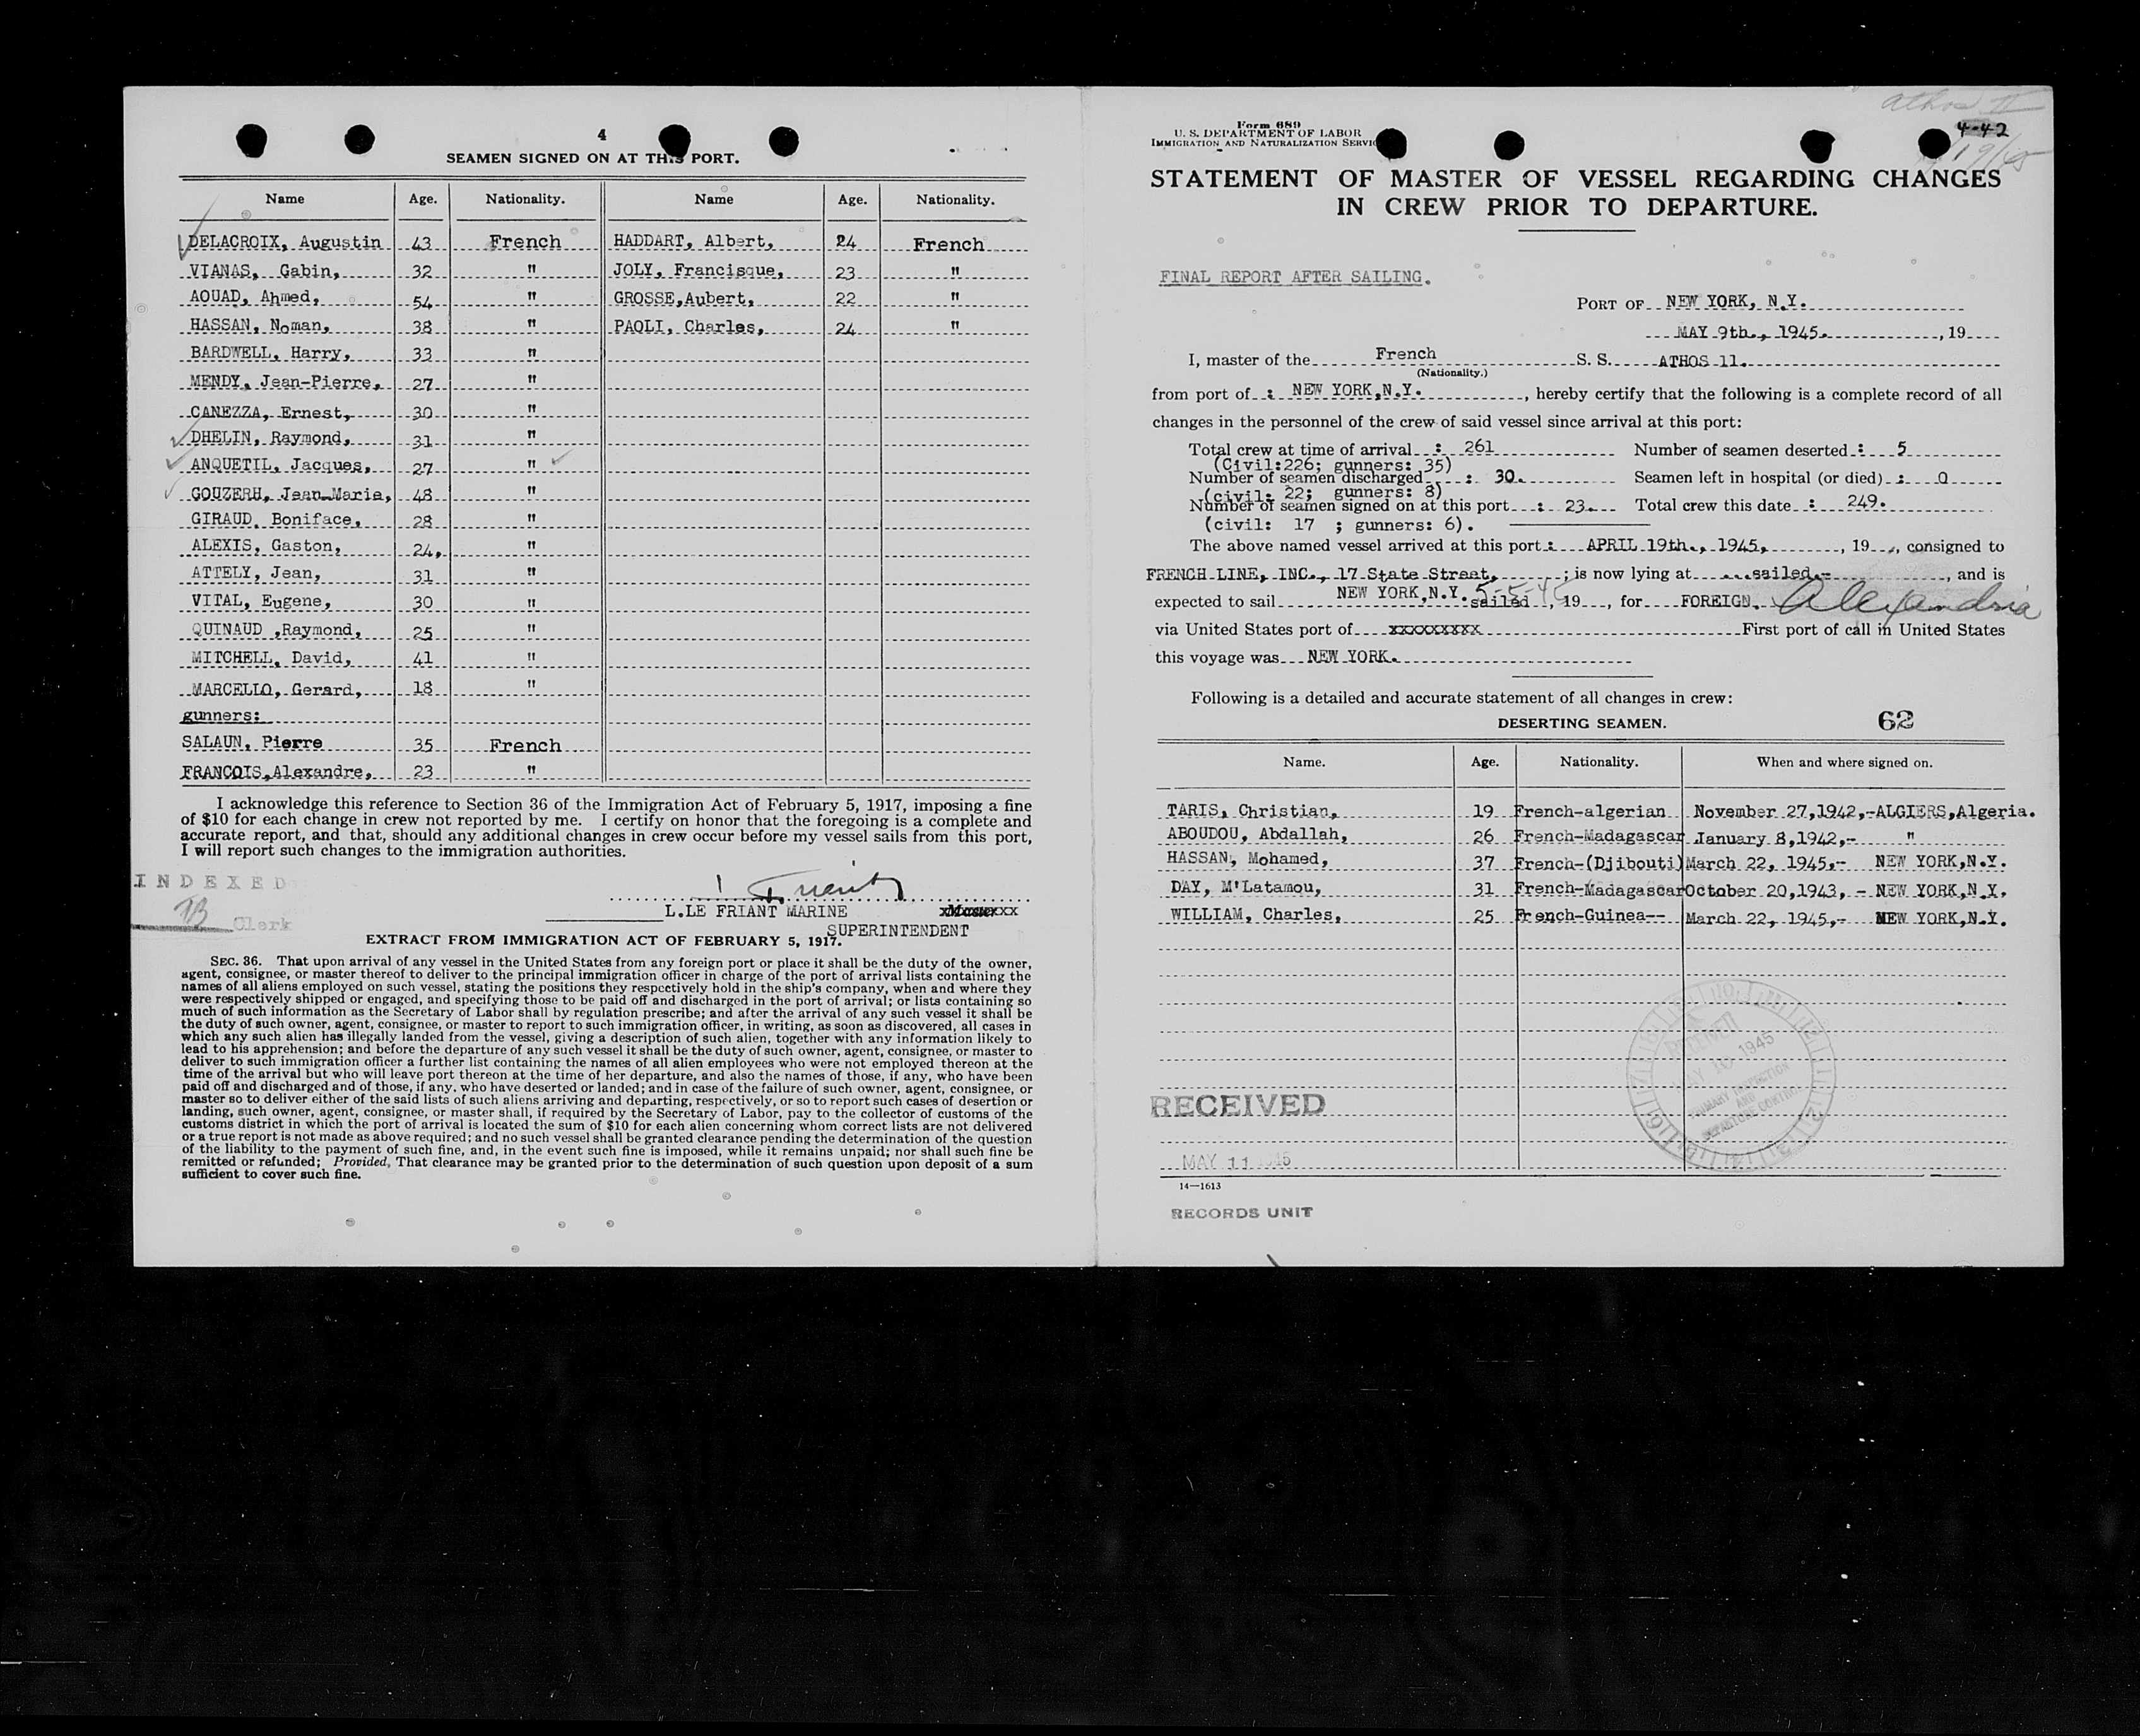 4
SEAMEN SIGNED ON AT THIS PORT.
Name Age. Nationality. Name Age. Nationality.
DELACROIX, Augustin 43 French HADDART, Albert, 24 French
VIANAS, Gabin, 32 " JOLY, Francisque, 23 "
AOUAD, Ahmed, 54 " GROSSE,Aubert, 22 "
HASSAN, Noman, 38 " PAOLI, Charles, 24 "
BARDWELL, Harry, 33 "
MENDY, Jean-Pierre, 27 "
CANEZZA, Ernest, 30 "
DHELIN, Raymond, 31 "
ANQUETIL, Jacques, 27 "
GOUZERH, Jean-Marie, 48 "
GIRAUD, Boniface, 28 "
ALEXIS, Gaston, 24, "
ATTELY, Jean, 31 "
VITAL, Eugene, 30 "
QUINAUD ,Raymond, 25 "
MITCHELL, David, 41 "
MARCELLO, Gerard, 18 "
gunners:
SALAUN, Pierre 35 French
FRANCOIS,Alexandre, 23 "
I acknowledge this reference to Section 36 of the Immigration Act of February 5, 1917, imposing a fine
of $10 for each change in crew not reported by me. I certify on honor that the foregoing is a complete and
accurate report, and that, should any additional changes in crew occur before my vessel sails from this port,
I will report such changes to the immigration authorities.
INDEXED
Clerk
L.LE FRIANT MARINE
SUPERINTENDENT
EXTRACT FROM IMMIGRATION ACT OF FEBRUARY 5, 1917.
SEC. 36. That upon arrival of any vessel in the United States from any foreign port or place it shall be the duty of the owner,
agent, consignee, or master thereof to deliver to the principal immigration officer in charge of the port of arrival lists containing the
names of all aliens employed on such vessel, stating the positions they respectively hold in the ship's company, when and where they
were respectively shipped or engaged, and specifying those to be paid off and discharged in the port of arrival; or lists containing so
much of such information as the Secretary of Labor shall by regulation prescribe; and after the arrival of any such vessel it shall be
the duty of such owner, agent, consignee, or master to report to such immigration officer, in writing, as soon as discovered, all cases in
which any such alien has illegally landed from the vessel, giving a description of such alien, together with any information likely to
lead to his apprehension; and before the departure of any such vessel it shall be the duty of such owner, agent, consignee, or master to
deliver to such immigration officer a further list containing the names of all alien employees who were not employed thereon at the
time of the arrival but who will leave port thereon at the time of her departure, and also the names of those, if any, who have been
paid off and discharged and of those, if any, who have deserted or landed; and in case of the failure of such owner, agent, consignee, or
master so to deliver either of the said lists of such aliens arriving and departing, respectively, or so to report such cases of desertion or
landing, such owner, agent, consignee, or master shall, if required by the Secretary of Labor, pay to the collector of customs of the
customs district in which the port of arrival is located the sum of $10 for each alien concerning whom correct lists are not delivered
or a true report is not made as above required; and no such vessel shall be granted clearance pending the determination of the question
of the liability to the payment of such fine, and, in the event such fine is imposed, while it remains unpaid; nor shall such fine be
remitted or refunded; Provided, That clearance may be granted prior to the determination of such question upon deposit of a sum
sufficient to cover such fine.
Athos II
4-42
Form 689
U. S. DEPARTMENT OF LABOR
IMMIGRATION AND NATURALIZATION SERVICE
STATEMENT OF MASTER OF VESSEL REGARDING CHANGES
IN CREW PRIOR TO DEPARTURE.
FINAL REPORT AFTER SAILING.
PORT OF NEW YORK, N.Y.
MAY 9th., 1945. , 19
I, master of the French S. S. ATHOS 11.
(Nationality.)
from port of : NEW YORK,N.Y. , hereby certify that the following is a complete record of all
changes in the personnel of the crew of said vessel since arrival at this port:
Total crew at time of arrival : 261 Number of seamen deserted : 5
(Civil:226; gunners: 35)
Number of seamen discharged : 30. Seamen left in hospital (or died) : 0
(civil: 22; gunners: 8)
Number of seamen signed on at this port : 23. Total crew this date : 249.
(civil: 17 ; gunners: 6).
The above named vessel arrived at this port : APRIL 19th., 1945, , 19 , consigned to
FRENCH LINE, INC., 17 State Street, ; is now lying at ...sailed.- , and is
expected to sail NEW YORK,N.Y. 5-5-45 sailed , 19 , for FOREIGN. Alexandria
via United States port of xxxxxxxxx First port of call in United States
this voyage was NEW YORK.
Following is a detailed and accurate statement of all changes in crew:
DESERTING SEAMEN. 62
Name. Age. Nationality. When and where signed on.
TARIS, Christian, 19 French-algerian November 27,1942,-ALGIERS,Algeria.
ABOUDOU, Abdallah, 26 French-Madagascar January 8,1942,- "
HASSAN, Mohamed, 37 French-(Djibouti) March 22, 1945,- NEW YORK,N.Y.
DAY, M'Latamou, 31 French-Madagascar October 20,1943, - NEW YORK,N.Y.
WILLIAM, Charles, 25 French-Guinea-- March 22, 1945,- NEW YORK,N.Y.
RECEIVED
MAY 10 1945
PRIMARY INSPECTION
AND
DEPARTURE CONTROL
RECEIVED
MAY 11 1945
14—1613
RECORDS UNIT